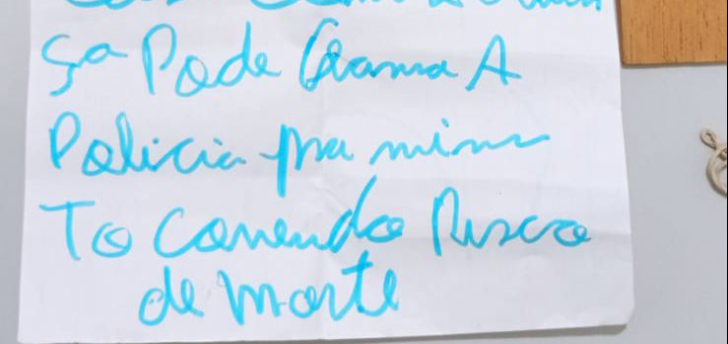 ça Pode Chama A
Policia pra mim
To correndo Risco
de morte